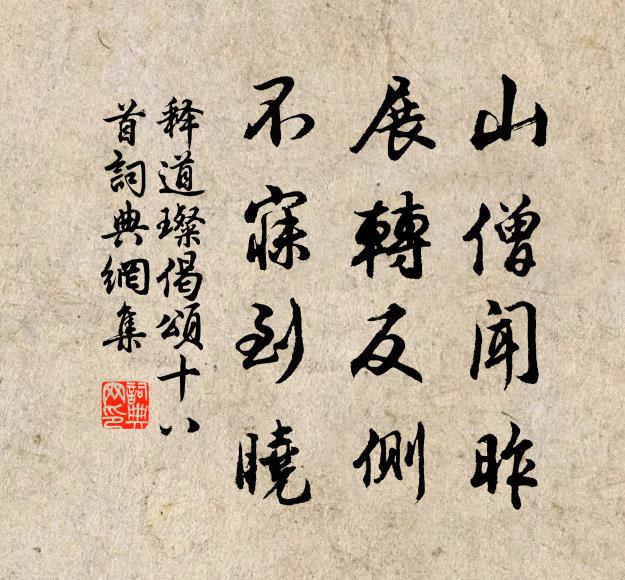 山僧闻昨
展轉反側
不寐到曉
释道璨偈頌十八
首詞典網集
詞典
网印